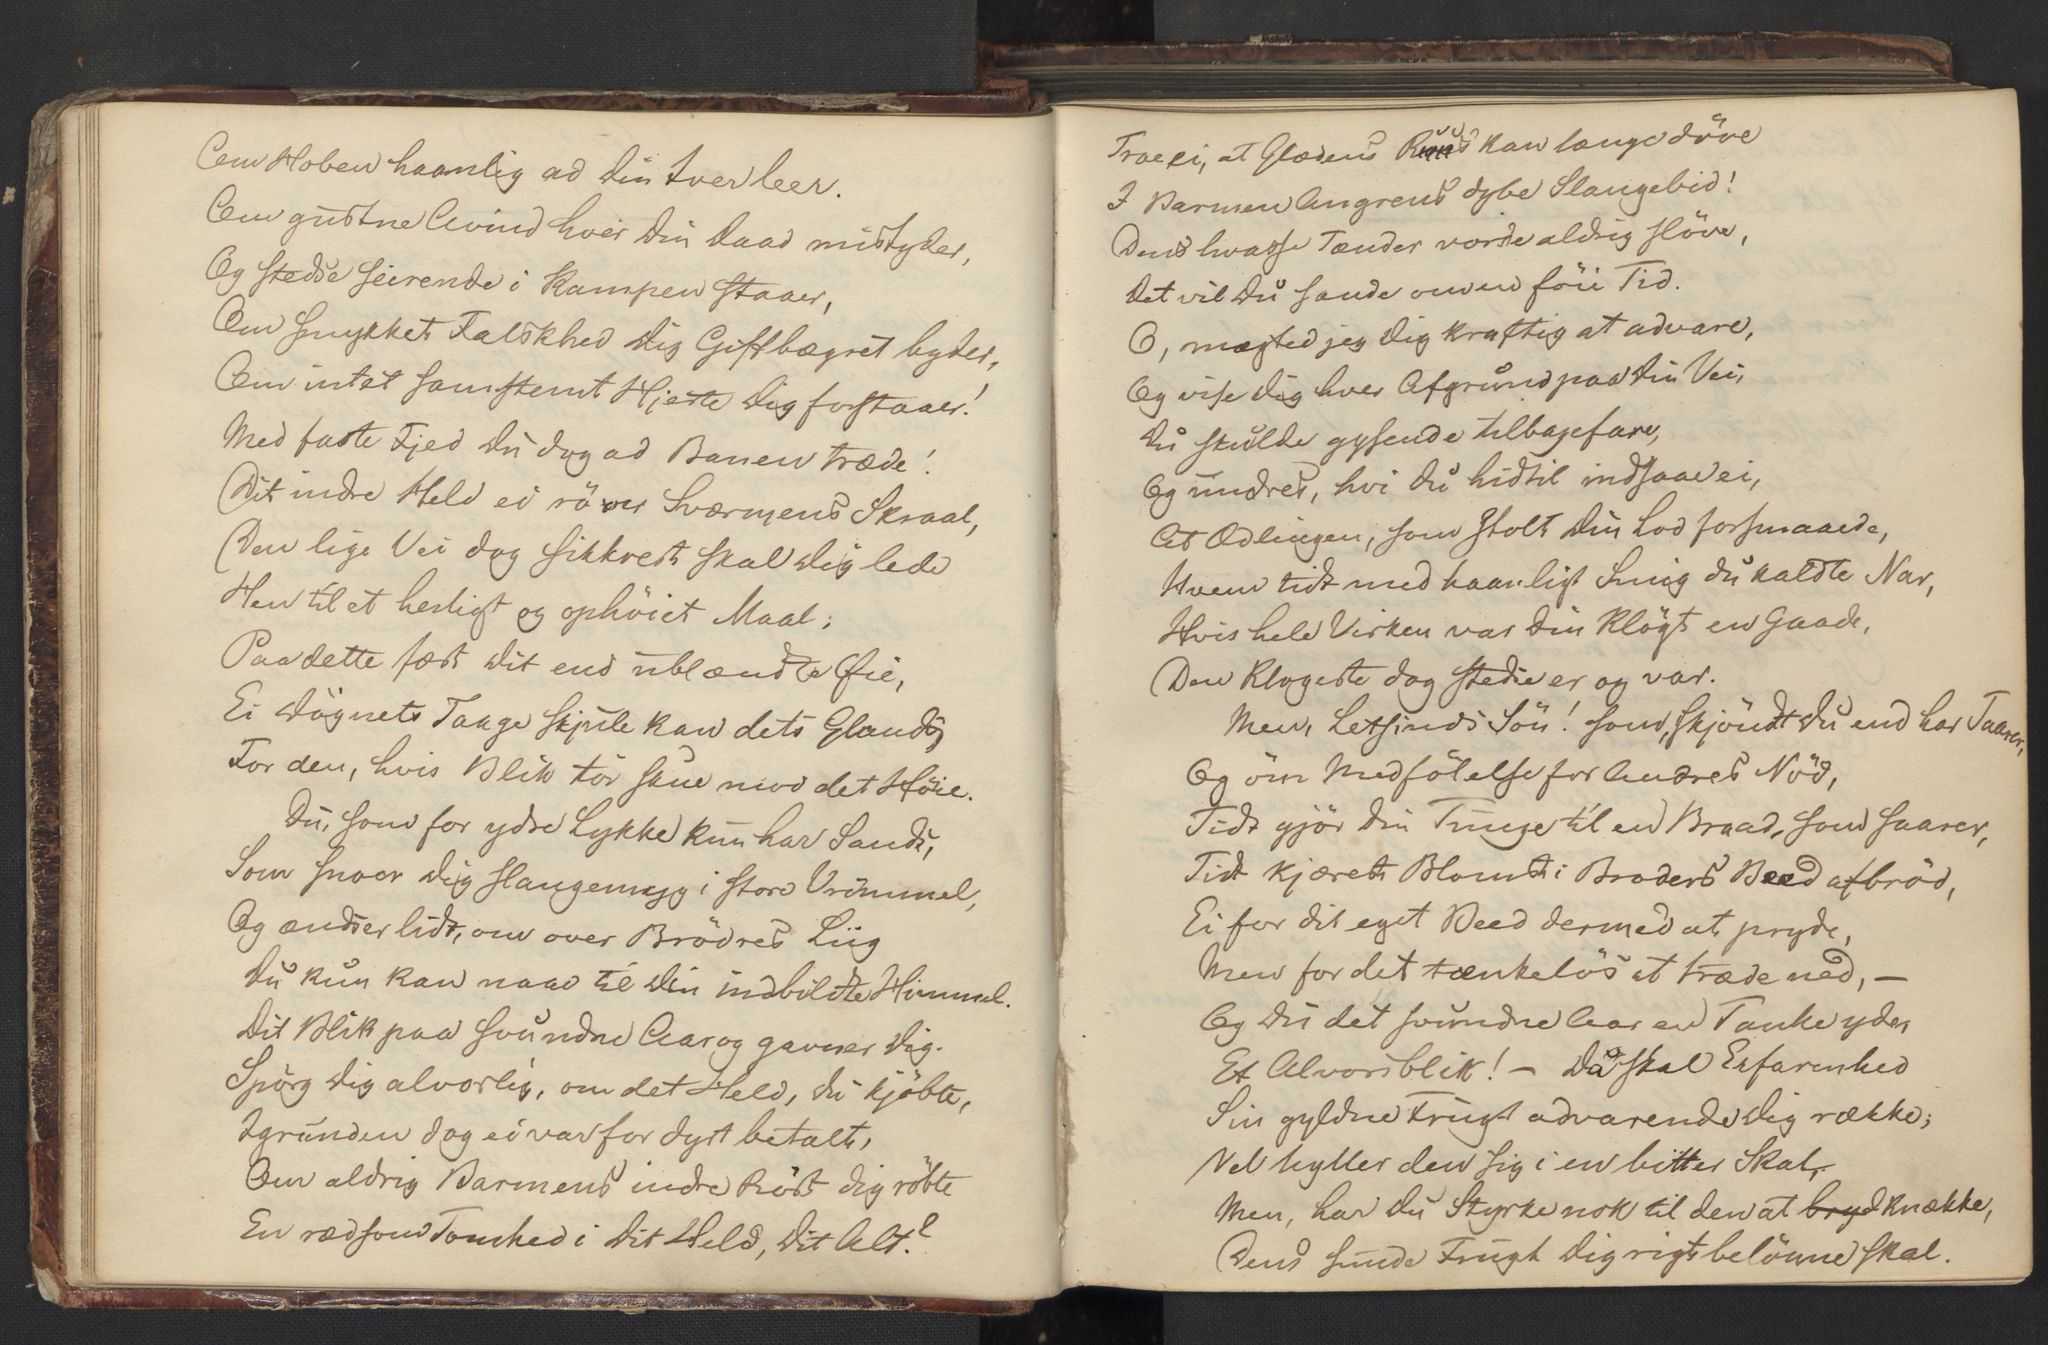 Om Hoben haanlig ad Din Iver leer.
Om gustne Avind hver Din Daad mistyder,
Og stedse seirende i Kampen staaer,
Om smykket Falskhed Dig Giftbægret byder,
Om intet samstemt Hjerte Dig forstaaer!
Med faste Fjed Du dog ad Banen træde!
Dit indre Held ei röver Sværmens Skraal,
Den lige Vei dog sikkrest skal Dig lede
Hen til et herligt og ophöiet Maal;
Paa dette fæst Dit end ublændte Øie,
Ei Døgnets Taage skjule kan dets Glands
For den, hvis Blik tör skue mod det Höie.
Du, som for ydre Lykke kun har Sands,
Som snoer Dig slangemyg i store Vrimmel,
Og ændser lidt, om over Brödres Liig
Du kun kan naae til Din indbildte Himmel.
Dit Blik paa svundne Aar og gavner Dig.
Spörg Dig alvorlig, om det Held, Du kjöbte,
Igrunden dog ei var for dyrt betalt,
Om aldrig Barmens indre Röst Dig röbte
En rædsom Tomhed i Dit Held, Dit Alt?
Troe ei, at Glædens Ruus kan længe döve
I Barmen Angrens dybe Slangebid!
Dens hvasse Tænder vorde aldrig slöve,
Det vil Du sande om en föie Tid.
O, mægted jeg Dig kraftig at advare,
Og vise Dig hver Afgrund paa Din Vei,
Du skulde gysende tilbagefare,
Og undres, hvi Du hidtil indsaae ei,
At Ædlingen, som stolt Din Lod forsmaaede,
Hvem tidt med haanligt Smiig Du kaldte Nar,
Hvis hele Virken var Din Klögt en Gaade,
Den Klogeste dog stedse er og var.
Men, Letsinds Sön! som, skjöndt Du end har Taarer,
Og öm Medfölelse for Andres Nöd,
Tidt gjör Din Tunge til en Braad, som saarer,
Tidt kjærest Blomst i Broders Beed afbröd,
Ei for dit eget Beed dermed at pryde,
Men for det tankelös at træde ned, —
Og Du det svundne Aar en Tanke yde,
Et Alvorsblik! — Da skal Erfarenhed
Sin gyldne Frugt advarende Dig række;
Vel hyller den sig i en bitter Skal,
Men, har Du Styrke nok til den at bryd knække,
Dens sunde Frugt Dig rigt belönne skal.